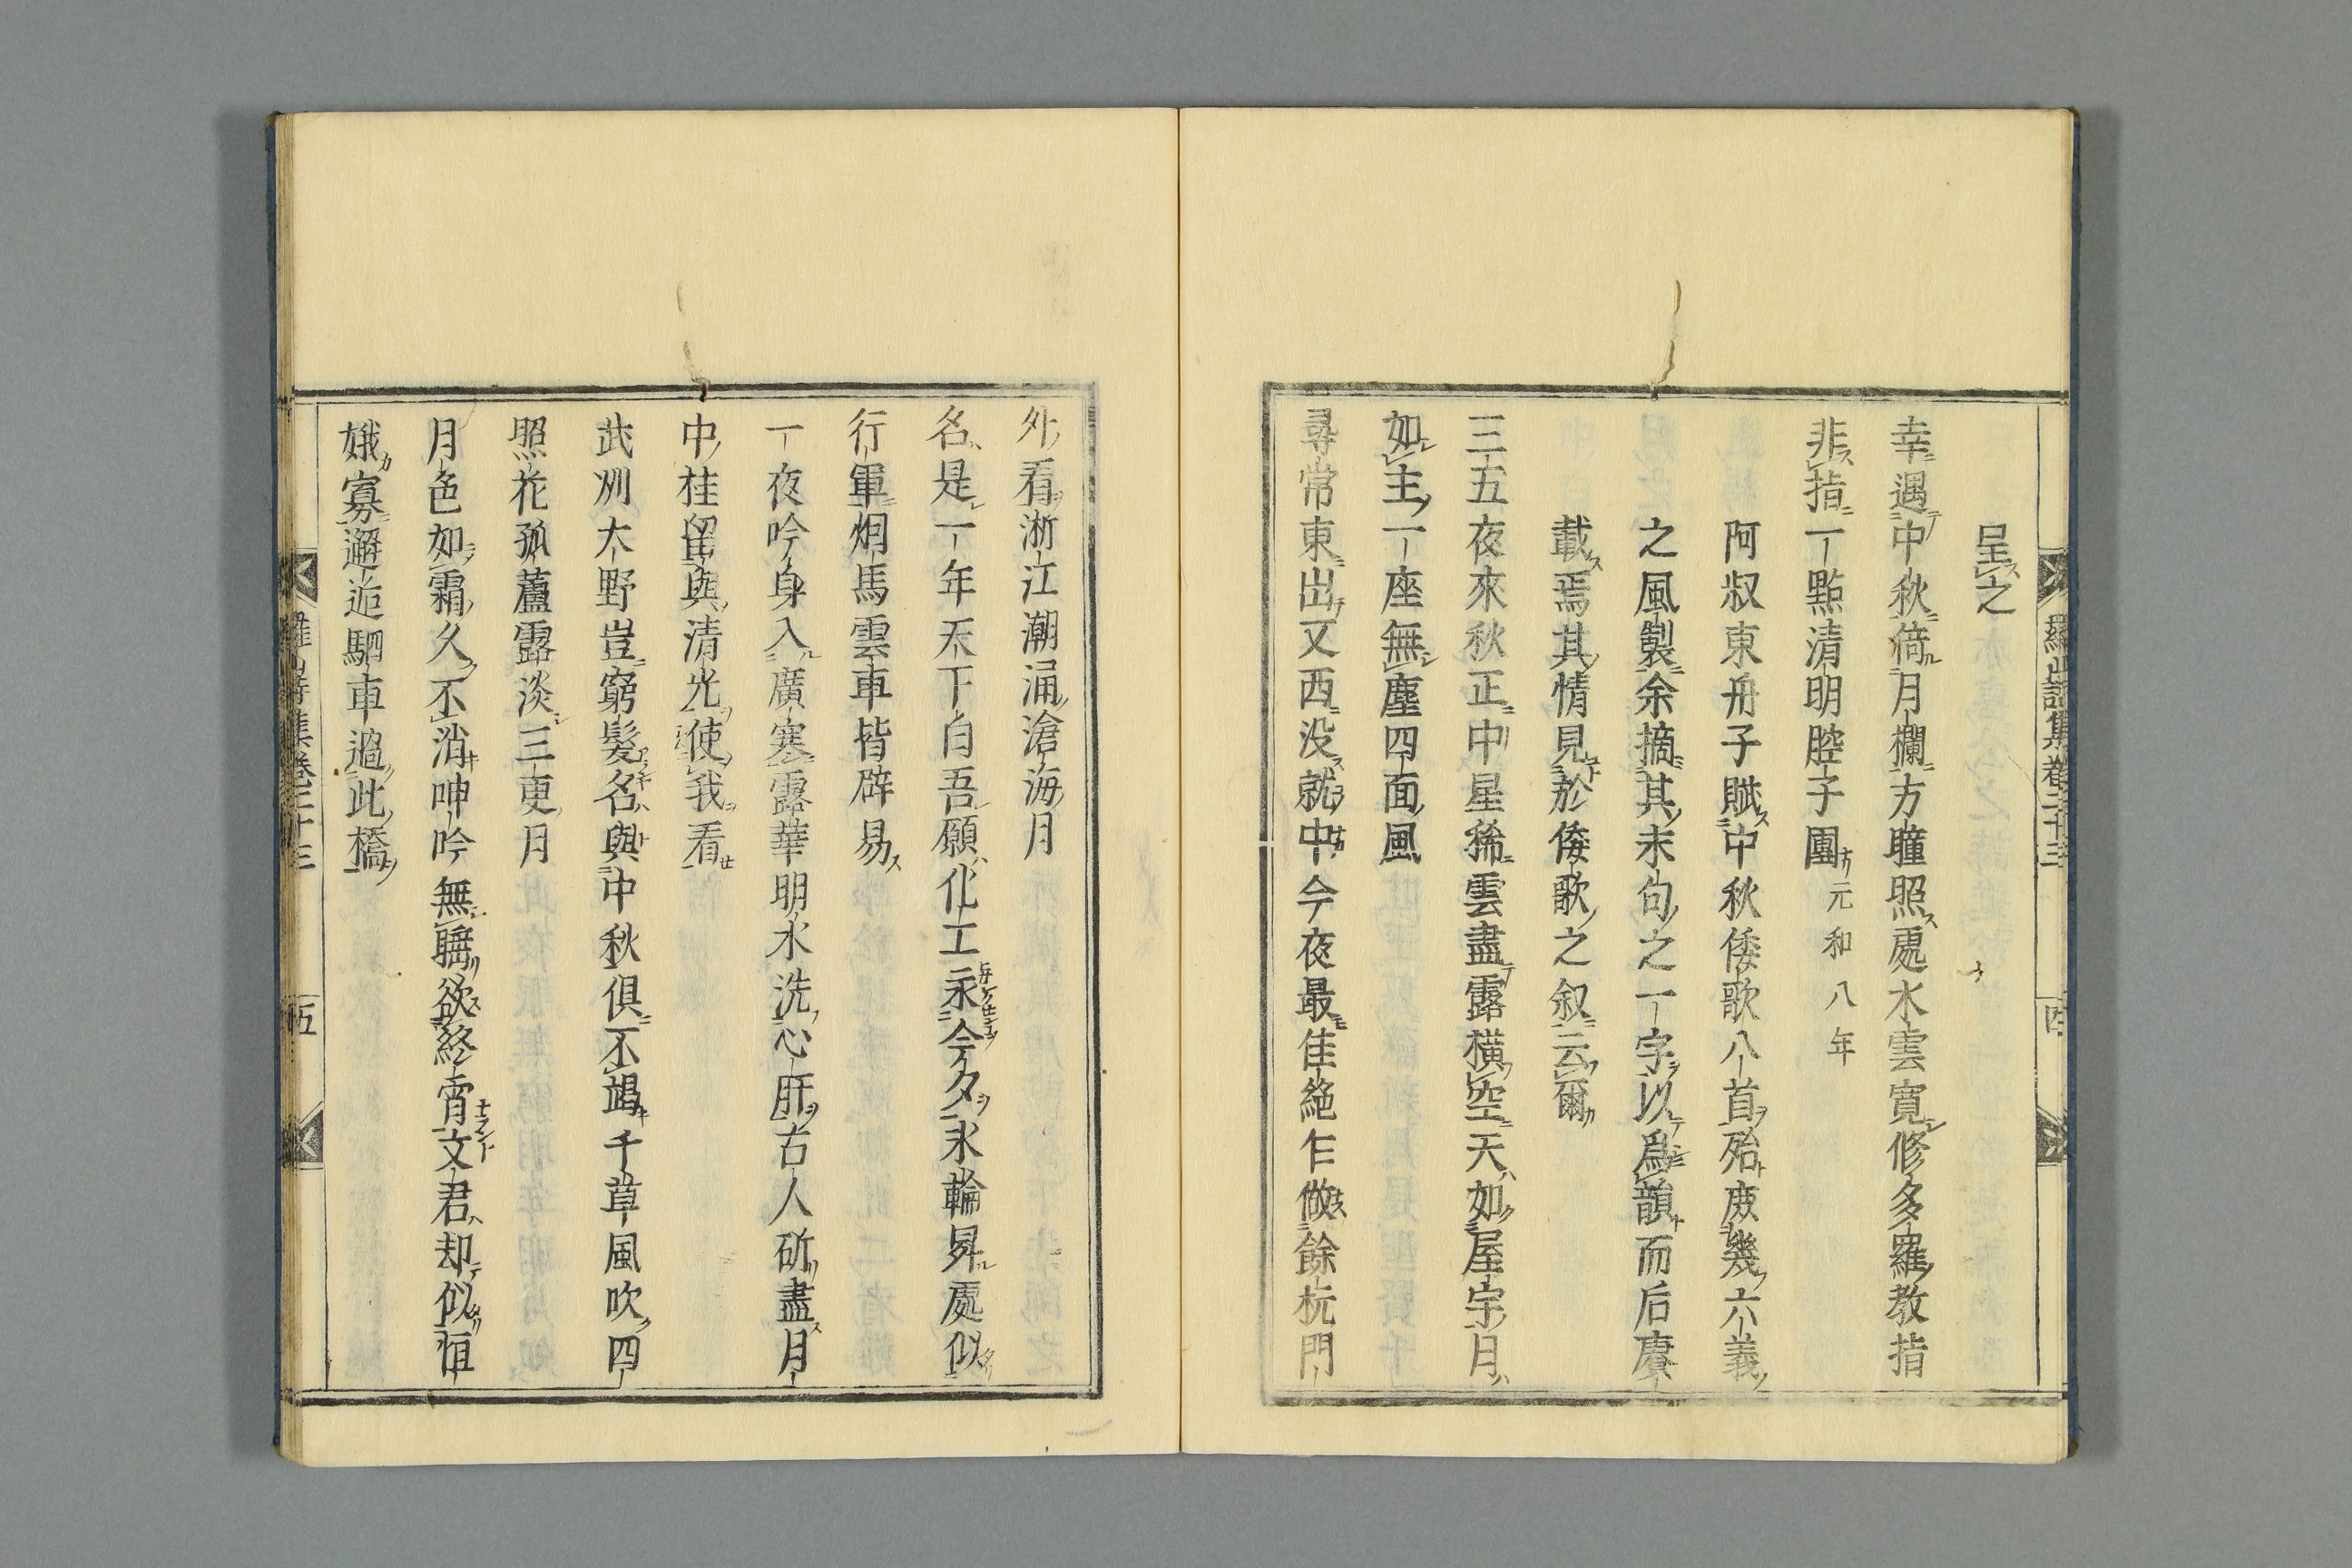 羅山詩集卷三十三
四
呈之
幸遇中秋倚月欄方瞳照處水雲寬修多羅教指
非指一點清明腔子團元和八年
阿叔東舟子賦中秋倭歌八首殆庶幾六義
之風製余摘其末句之一字以爲韻而后賡
載焉其情見於倭歌之叙云爾
三五夜來秋正中星稀雲盡露橫空天如屋宇月
如主一座無塵四面風
尋常東出又西没就中今夜最佳絶乍做餘杭門
外看浙江潮涌滄海月
名是一年天下白吾願化工永今夕氷輪昇處似
行軍烟馬雲車皆辟易
一夜吟身入廣寒露華明水洗心肝古人斫盡月
中桂留與清光使我看
武州大野豈窮髮名與中秋俱不竭千草風吹四
照花孤蘆露淡三更月
月色如霜久不消呻吟無聊欲終宵文君却似恒
娥寡邂逅駟車過此橋
羅山詩集卷三十三
五